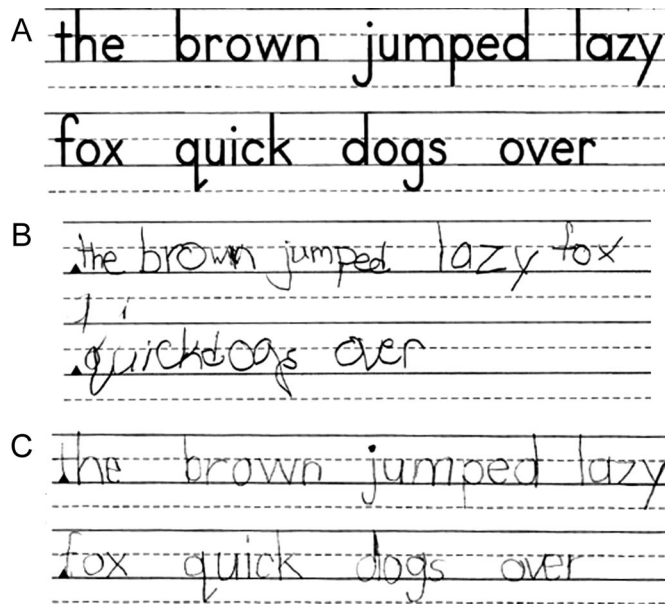 A
the brown jumped lazy
fox quick dogs over
B
the brown jumped lazy fox
quickdogs over
C
the brown jumped lazy
fox quick dogs over